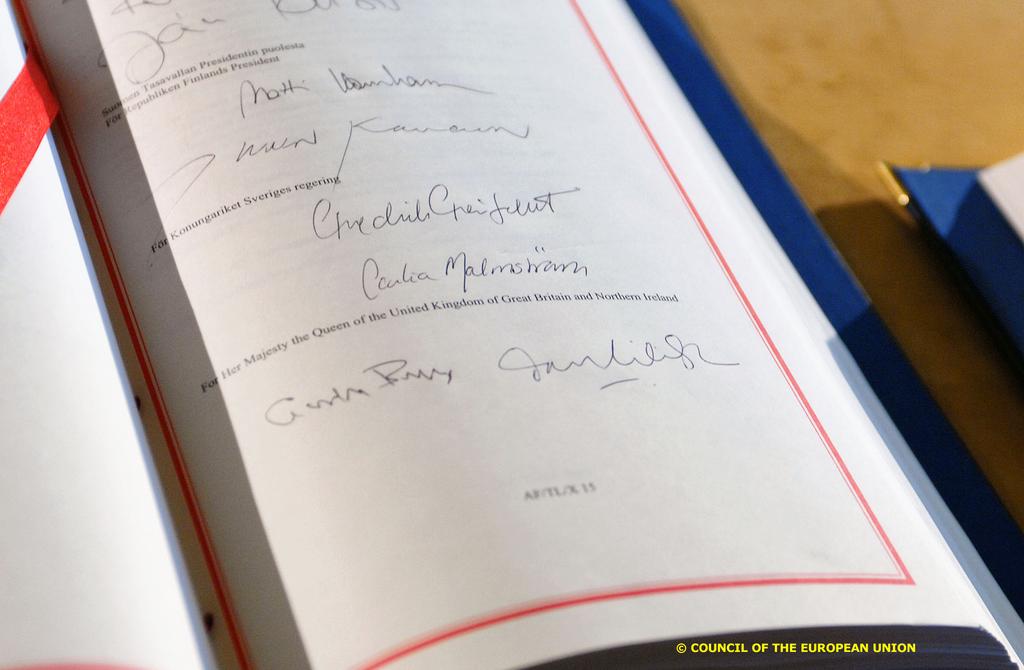 Ján
Suomen Tasavallan Presidentin puolesta
För Republiken Finlands President
Matti Vanhanen
Ilkka Kanerva
För Konungariket Sveriges regering
Fredrik Reinfeldt
Cecilia Malmström
For Her Majesty the Queen of the United Kingdom of Great Britain and Northern Ireland
Gordon Brown David Miliband
AF/TL/X 15
© COUNCIL OF THE EUROPEAN UNION